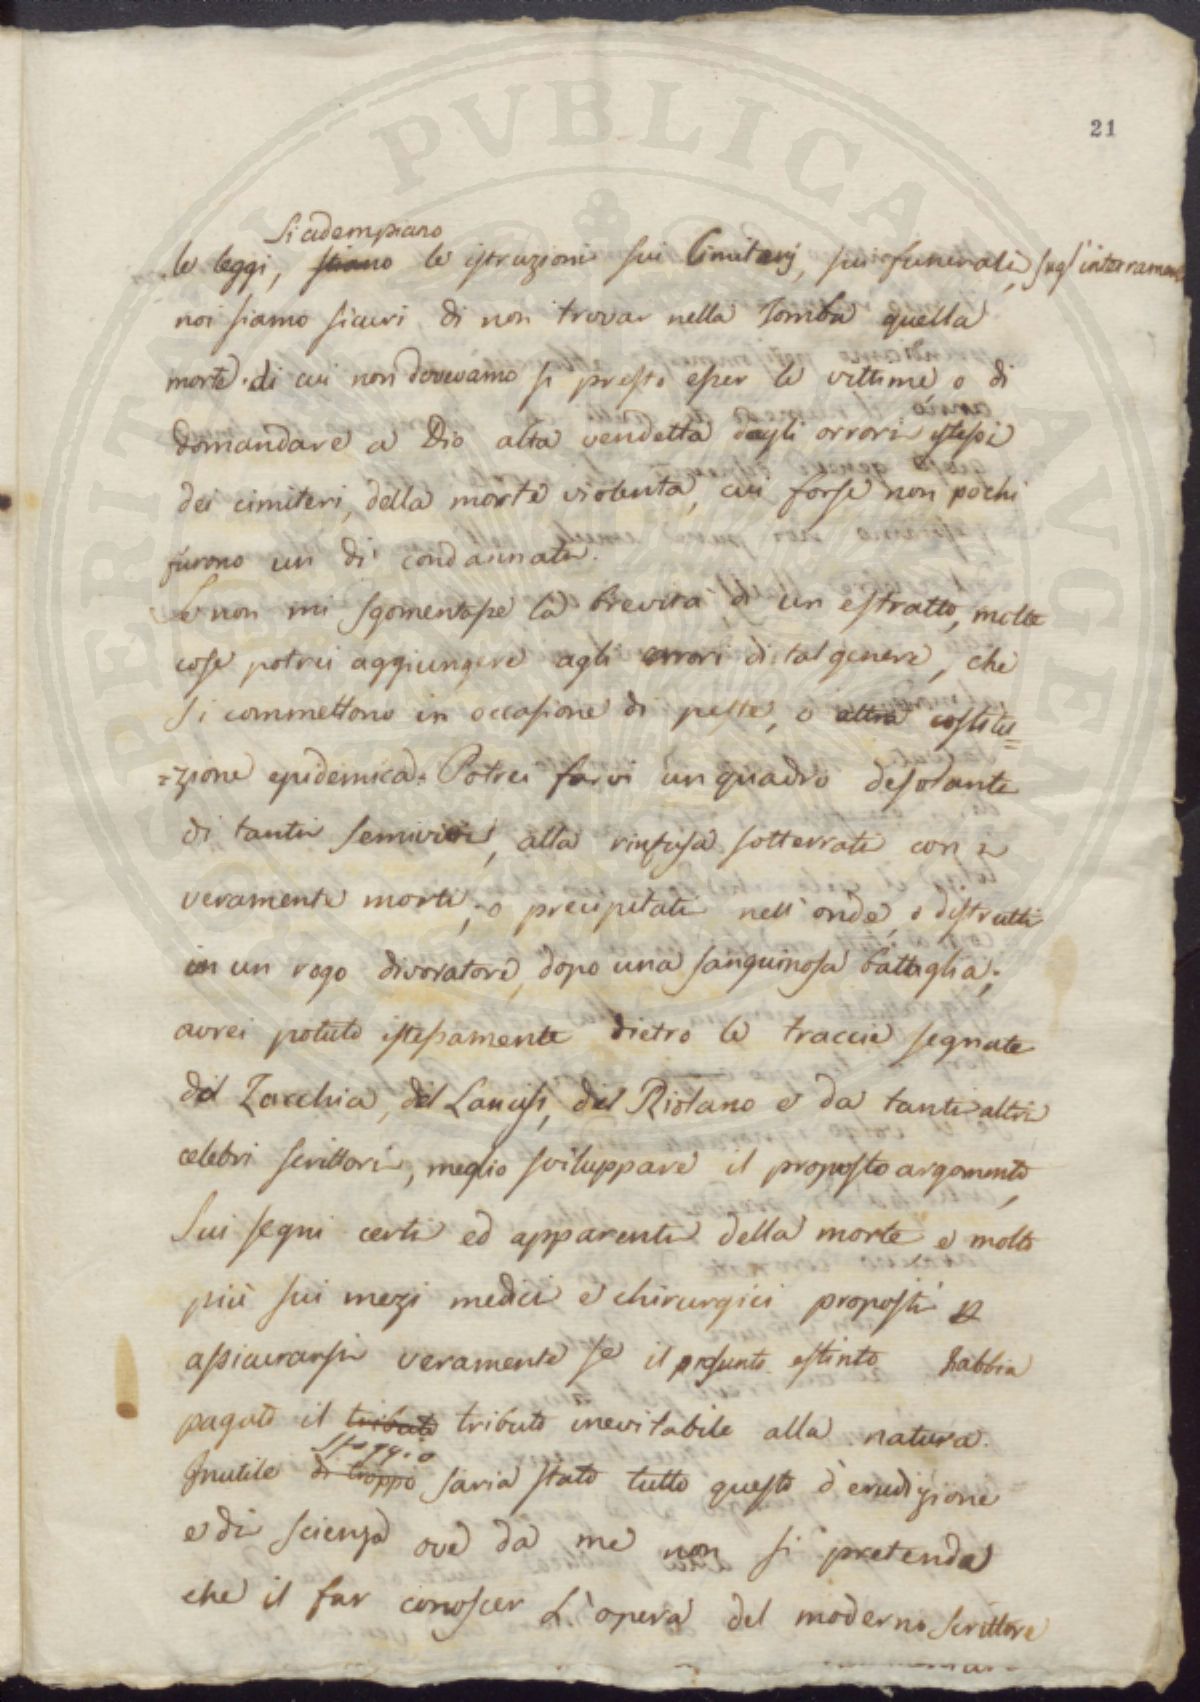 21
Si adempiano
le leggi, siano le istruzioni sui Cimiterj, sui funerali, sugl'interramen
noi siamo sicuri di non trovar nella Tomba quella
morte di cui non dovevamo sì presto esser le vittime o di
domandare a Dio alta vendetta dagli orrori istessi
dei cimiteri, della morte violenta, cui forse non pochi
furono un dì condannati.
Se non mi sgomentasse la brevità di un estratto, molte
cose potrei aggiungere agli errori di tal genere, che
si commettono in occasione di peste, o altra costitu=
=zione epidemica. Potrei farvi un quadro desolante
di tanti semivivi, alla rinfusa sotterrati con i
veramente morti, o precipitati nell'onde, o distrutti
in un rogo divoratore, dopo una sanguinosa battaglia;
avrei potuto istessamente dietro le traccie segnate
del Zacchia, del Lancisi, del Riolano e da tanti altri
celebri scrittori, meglio sviluppare il proposto argomento,
Sui segni certi ed apparenti della morte, e molto
più sui mezi medici e chirurgici proposti p
assicurarsi veramente se il presunto estinto habbia
pagato il tributo tributo inevitabile alla natura.
sfoggio
Inutile di troppo saria stato tutto questo d'erudizione
e di scienza ove da me non si pretenda
che il far conoscer L'opera del moderno scrittore